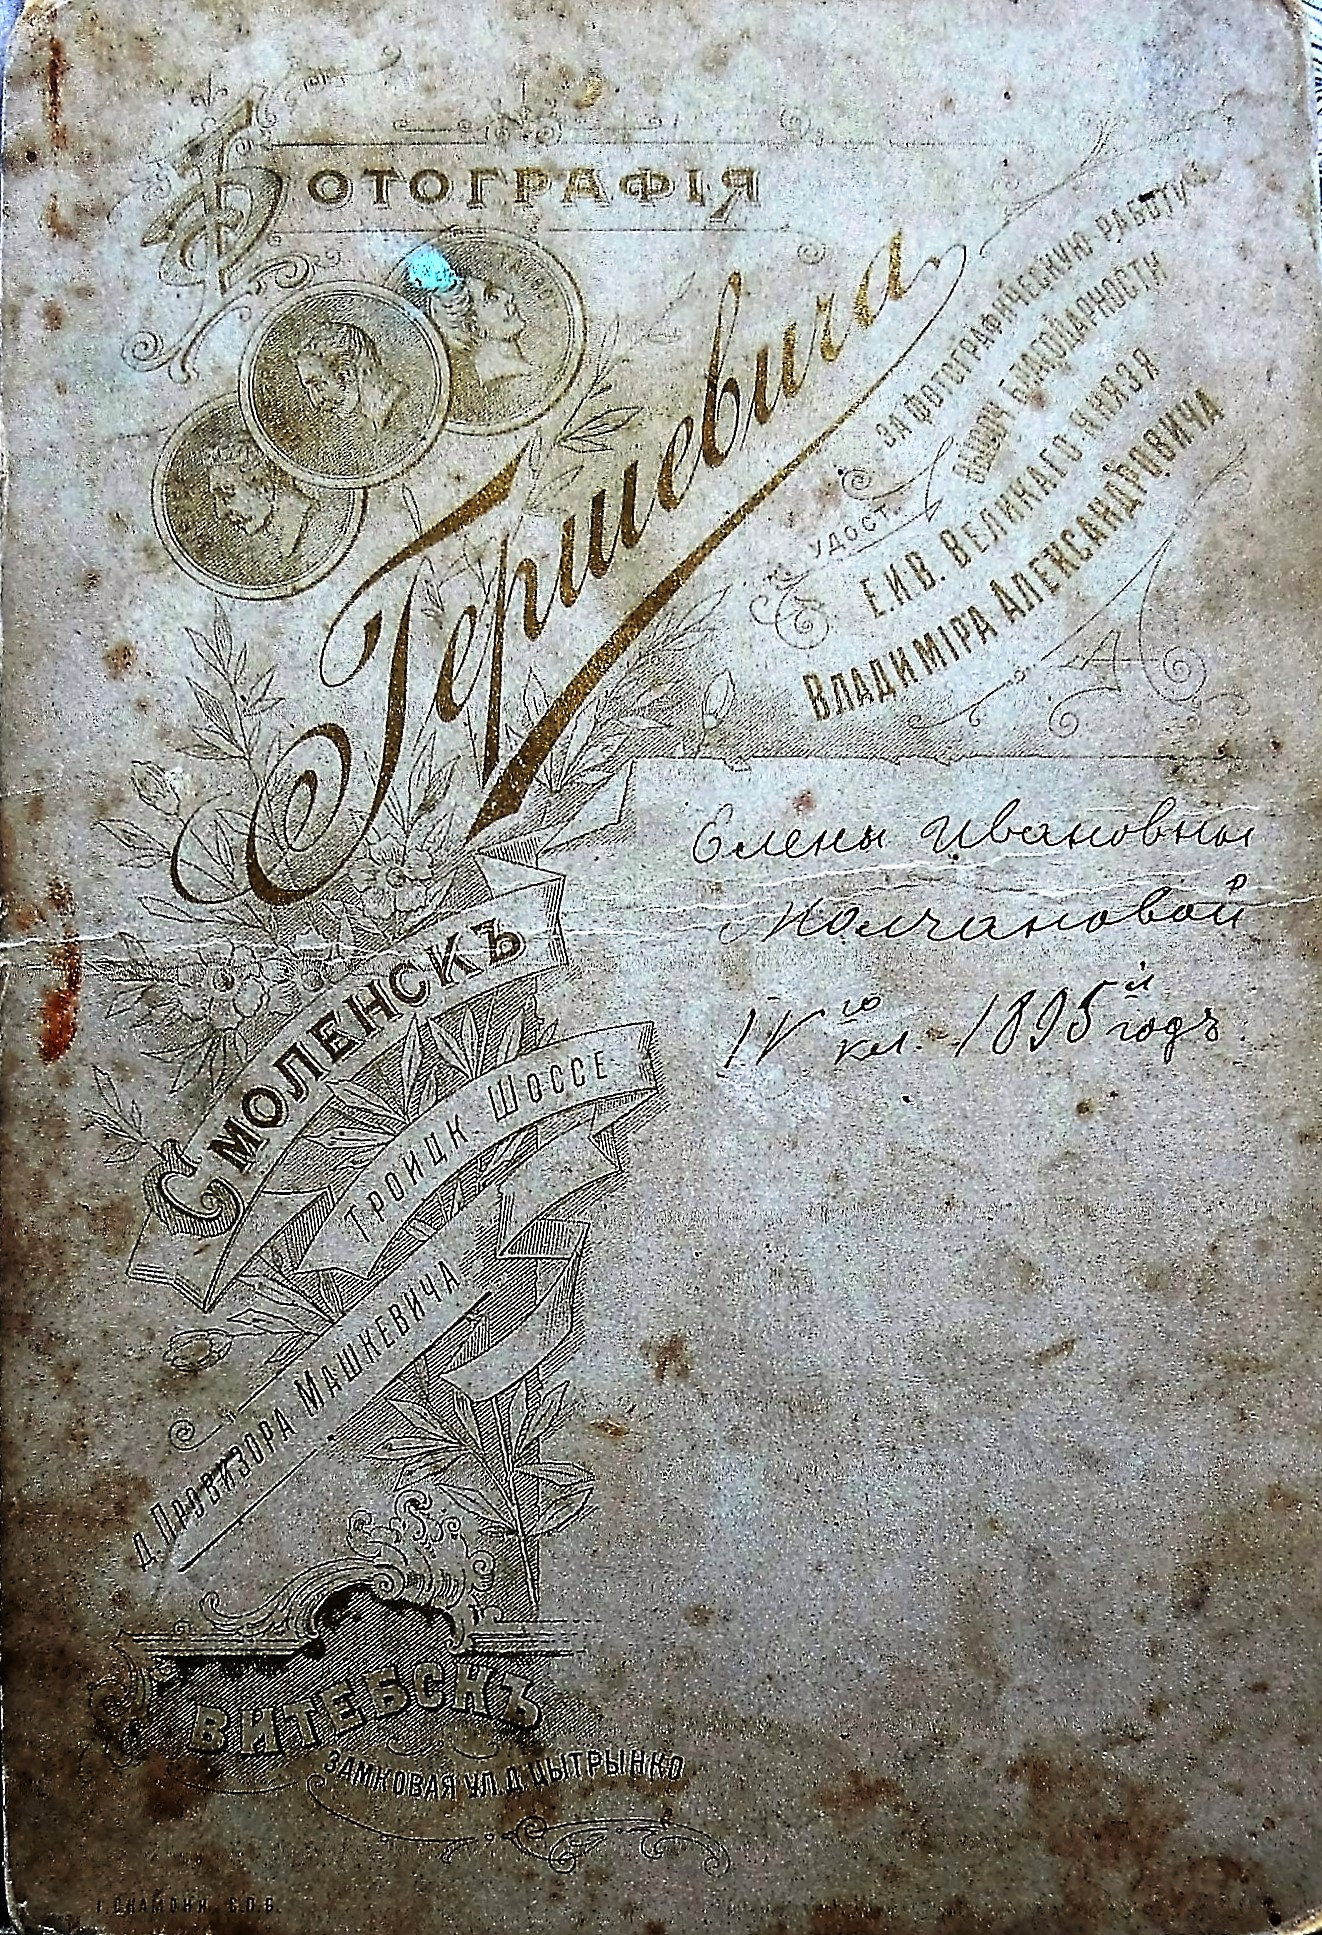 Фотографія
Гершевича
удост.
за фотографическую работу
благодарности
Е.И.В. Великаго Князя
Владиміра Александровича
Елены Ивановны
Молчановой
IV го кл. 1895 й годъ.
Смоленскъ
Тройцк. Шоссе
д. Провизора Машкевича.
Витебскъ
Замковая ул. д. Цытрынко